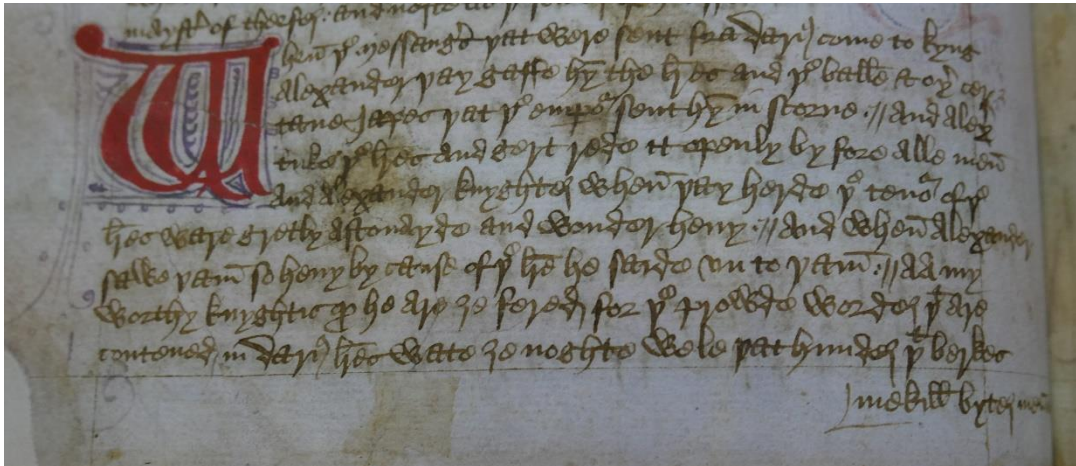 maystr of thee for and noste
When þe messangers þat were sent fra Dari come to kyng
Alexander þay gaffe hym the lres and þe balle & oþer cer
tane japes þat þe emperor sent hym in scorne ·// And Alexr
tuke þe lres and gert rede tt openly by fore alle men
And Alexander knyghtes when þay herde þe tenor of þe
lres ware gretly astonayde and wonder heuy ·// And when Alexander
sawe þam so heuy by cause of þe lre he saide vn to þam ·// A A my
worthy knyghtis whe are ȝe ferede for þe prowde wordes þt are
contened in Dari lres wate ȝe noghte wele þat hundes þt berkes
mekill bytes men